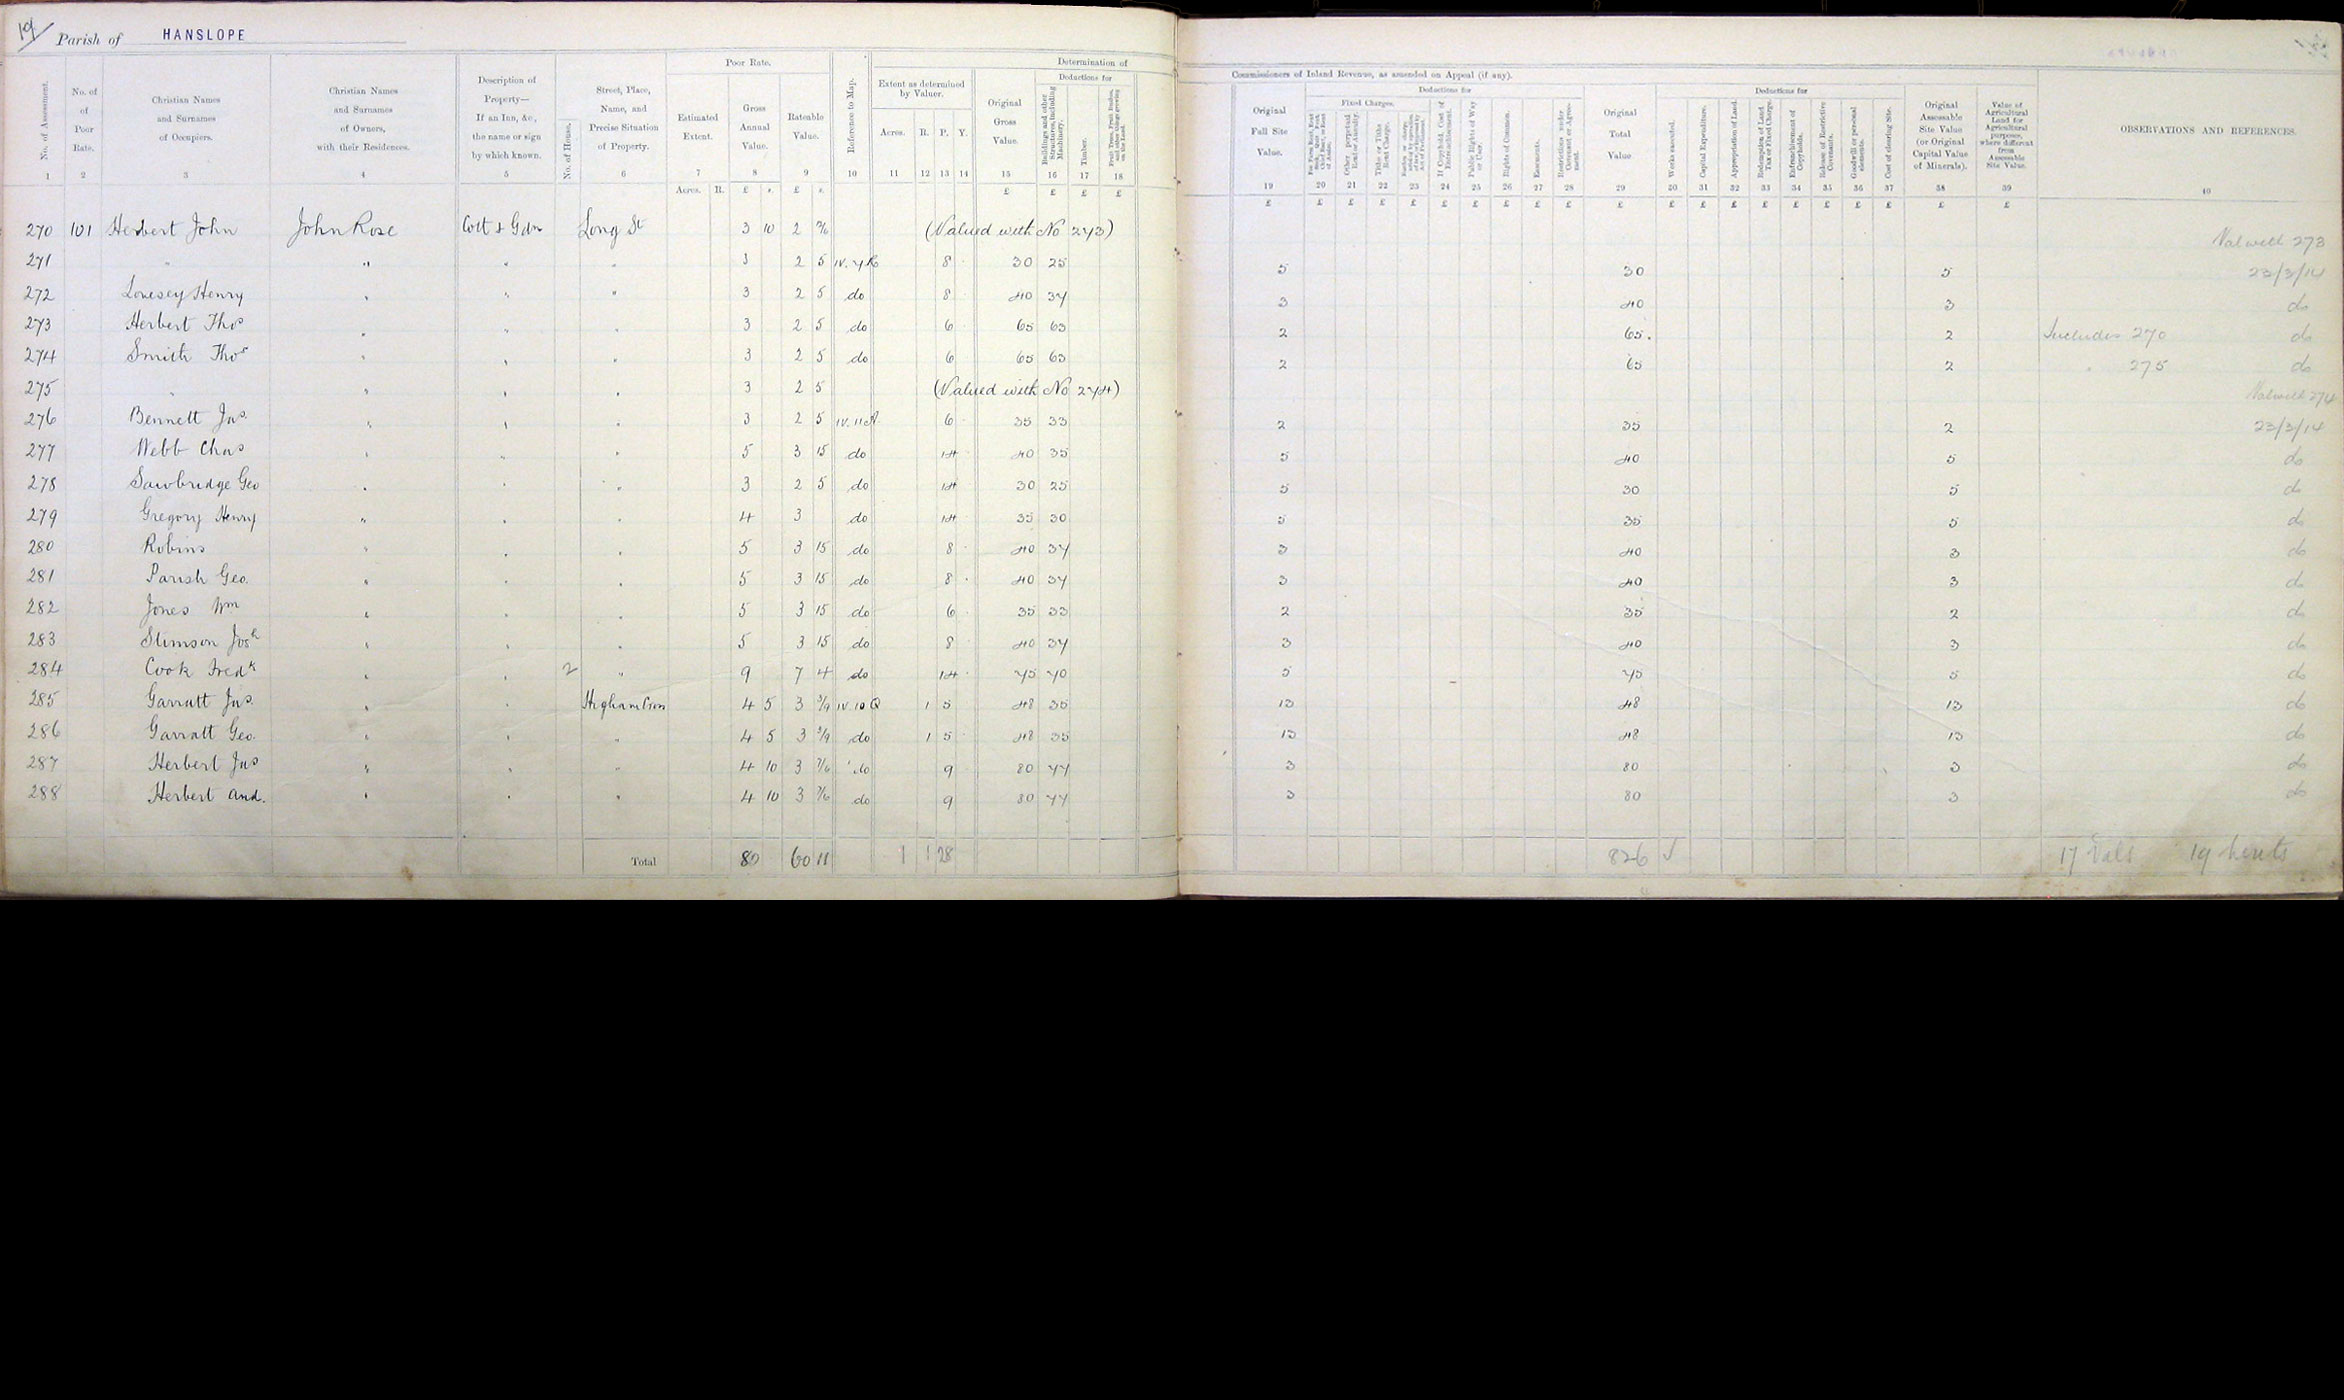 19
Parish of HANSLOPE
Poor Rate. Determination of Commissioners of Inland Revenue, as amended on Appeal (if any).
Extent as determined by Valuer. Deductions for Deductions for Deductions for
Fixed Charges.
No. of Assessment. No. of Poor Rate. Christian Names and Surnames of Occupiers. Christian Names and Surnames of Owners, with their Residences. Description of Property— If an Inn, &c., the name or sign by which known. No. of House. Street, Place, Name, and Precise Situation of Property. Estimated Extent. Gross Annual Value. Rateable Value. Reference to Map. Acres. R. P. Y. Original Gross Value. Buildings and other Structures, including Machinery. Timber. Fruit Trees, Fruit Bushes, and other things growing on the Land. Original Full Site Value. Other perpetual Rent or Annuity. Tithe or Tithe Rent Charge. If Copyhold, Cost of Enfranchisement. Public Rights of Way or User. Rights of Common. Easements. Restrictions under Covenant or Agreement. Original Total Value. Works executed. Capital Expenditure. Appropriation of Land. Redemption of Land Tax or Fixed Charge. Enfranchisement of Copyholds. Release of Restrictive Covenants. Goodwill or personal elements. Cost of clearing Site. Original Assessable Site Value (or Original Capital Value of Minerals). Value of Agricultural Land for Agricultural purposes, where different from Assessable Site Value. OBSERVATIONS AND REFERENCES.
1 2 3 4 5 6 7 8 9 10 11 12 13 14 15 16 17 18 19 20 21 22 23 24 25 26 27 28 29 30 31 32 33 34 35 36 37 38 39 40
Acres. R. £ s. £ s. £ £ £ £ £ £ £ £ £ £ £ £ £ £ £ £ £ £ £ £ £ £ £ £ £
270 101 Herbert John John Rose Cott & Gdn Long St 3 10 2 7/6 (Valued with No 273) Val with 273
271 " " " " 3 2 5 IV. 7 R 8 30 25 5 30 5 23/3/14
272 Lovesey Henry " " " 3 2 5 do 8 40 37 3 40 3 do
273 Herbert Thos " " " 3 2 5 do 6 65 63 2 65 2 Includes 270 do
274 Smith Thos " " " 3 2 5 do 6 65 63 2 65 2 " 275 do
275 " " " " 3 2 5 (Valued with No 274) Val with 274
276 Bennett Jas " " " 3 2 5 IV. 11 A 6 35 33 2 35 2 23/3/14
277 Webb Chas " " " 5 3 15 do 14 40 35 5 40 5 do
278 Sawbridge Geo " " " 3 2 5 do 14 30 25 5 30 5 do
279 Gregory Henry " " " 4 3 do 14 35 30 5 35 5 do
280 Robins " " " 5 3 15 do 8 40 37 3 40 3 do
281 Parish Geo. " " " 5 3 15 do 8 40 37 3 40 3 do
282 Jones Wm " " " 5 3 15 do 6 35 33 2 35 2 do
283 Stimson Josh " " " 5 3 15 do 8 40 37 3 40 3 do
284 Cook Fredk " " 2 " 9 7 4 do 14 75 70 5 75 5 do
285 Garratt Jas. " " Higham Cross 4 5 3 3/9 IV. 10 Q 1 5 48 35 13 48 13 do
286 Garratt Geo. " " " 4 5 3 3/9 do 1 5 48 35 13 48 13 do
287 Herbert Jas " " " 4 10 3 7/6 do 9 80 77 3 80 3 do
288 Herbert And. " " " 4 10 3 7/6 do 9 80 77 3 80 3 do
Total 80 60 11 1 1 28 826 √ 17 Vals 19 herets